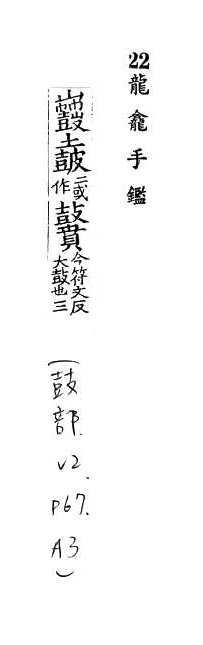 22 龍龕手鑑
二或作鼖今符文反大鼓也三
(鼓部. V2. P67. A3)